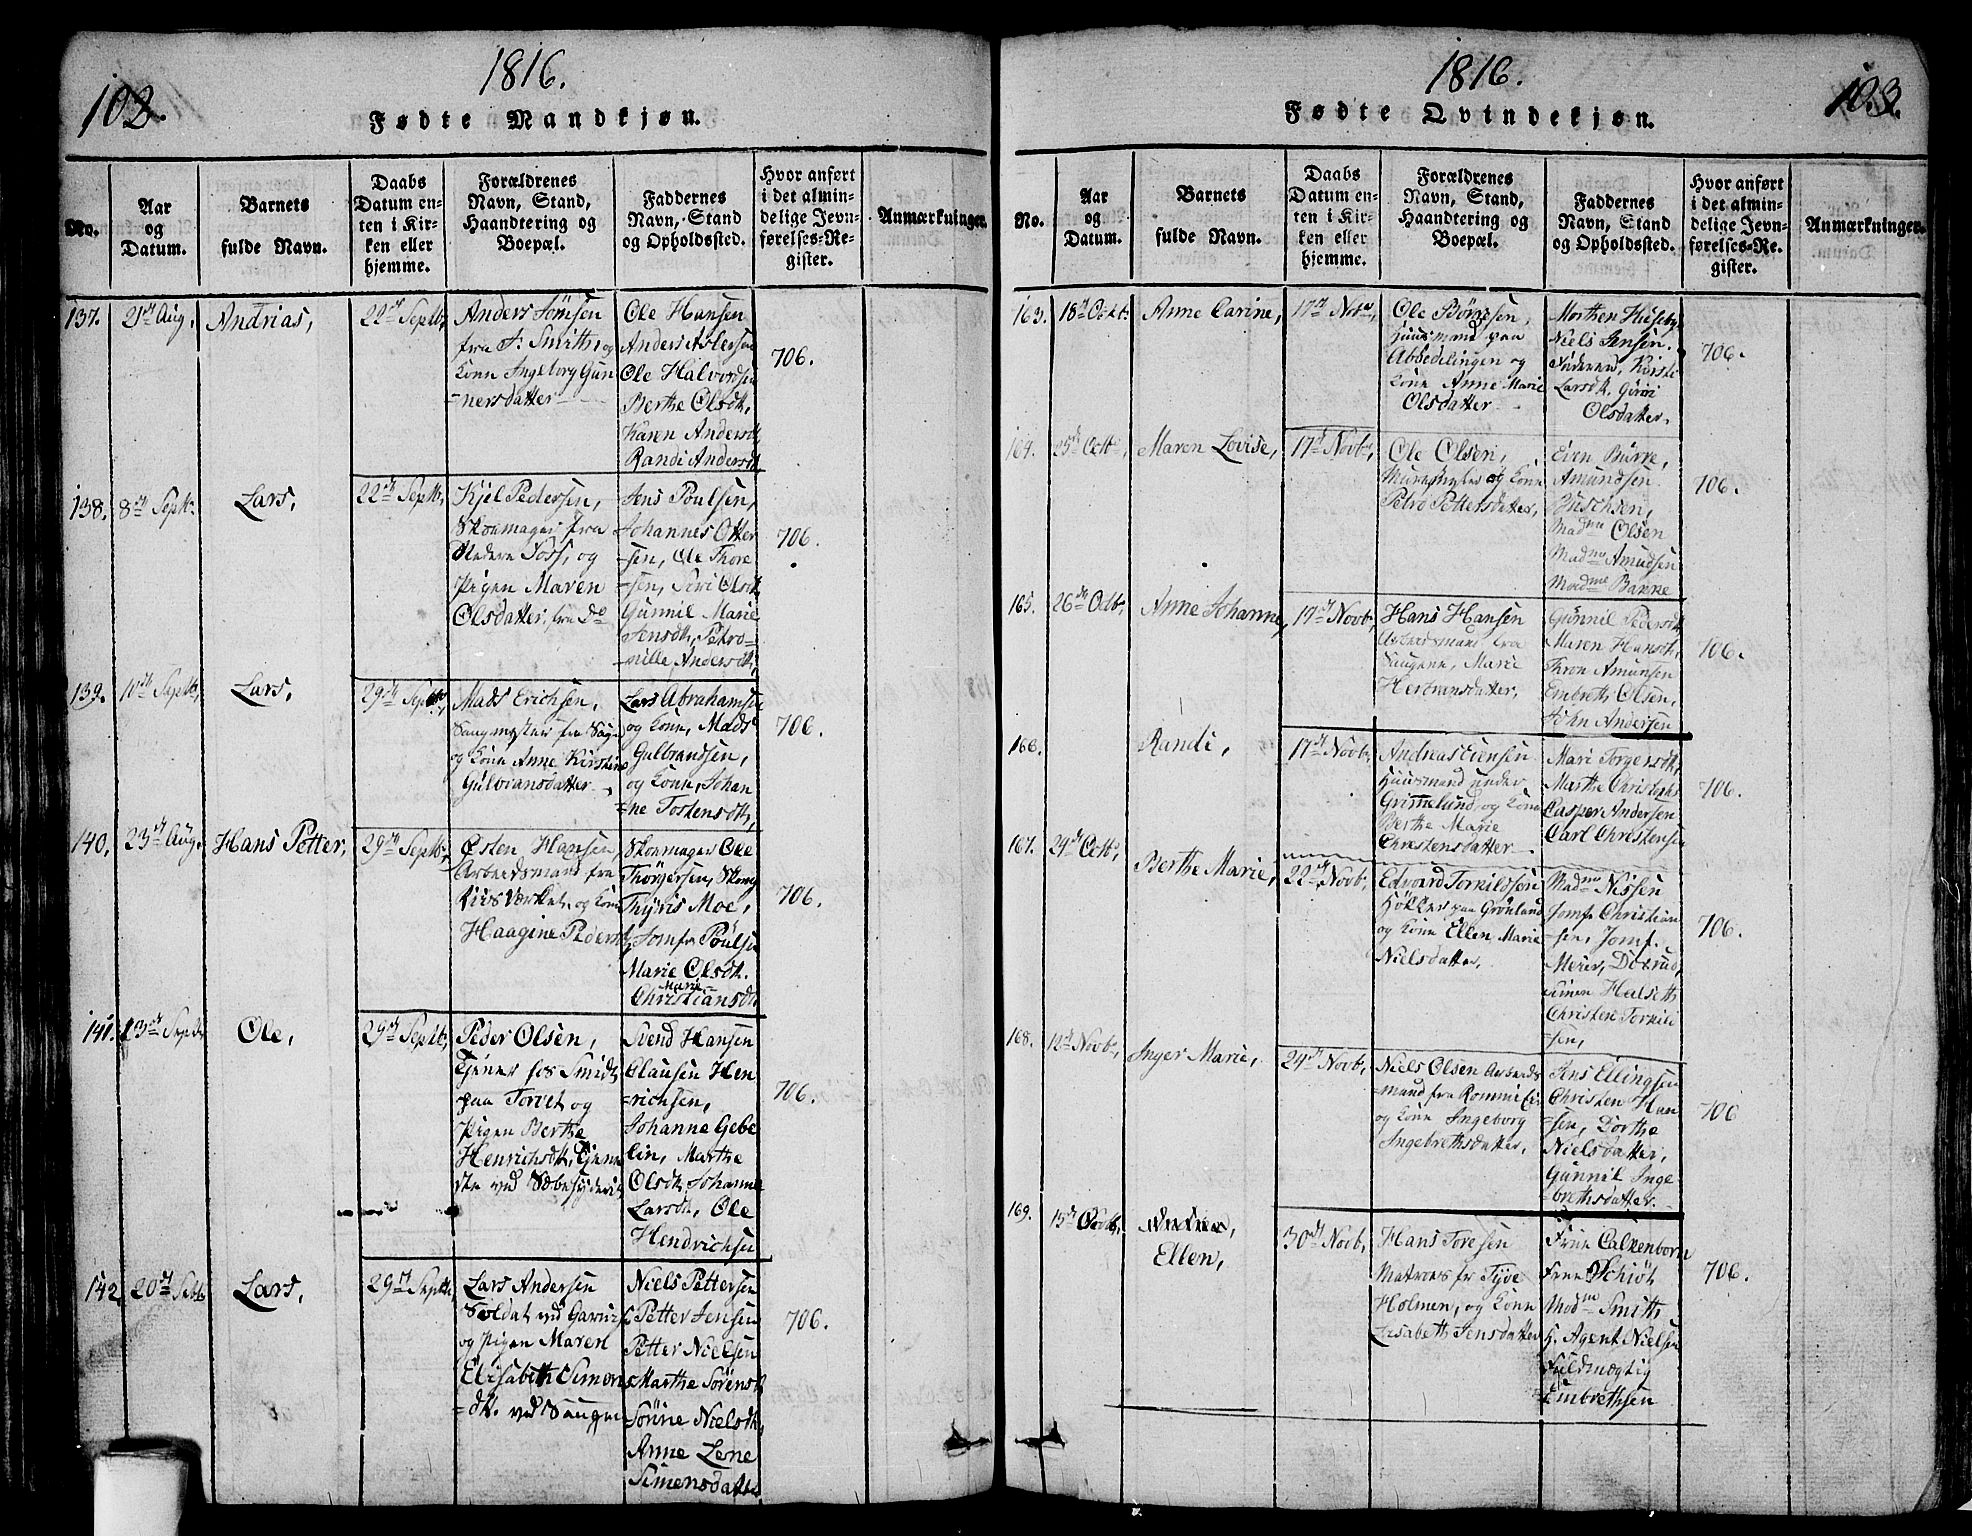 102.
1816.
Fødte Mandkjøn.
No.
Aar
og
Datum.
Barnets
fulde Navn.
Daabs
Datum en-
ten i Kir-
ken eller
hjemme.
Forældrenes
Navn, Stand,
Haandtering og
Boepæl.
Faddernes
Navn, Stand
og Opholdssted.
Hvor anført
i det almin-
delige Jevn-
førelses-Re-
gister.
Anmærkninger.
137.
21de Aug.
Andrias,
22de Septb,
Anders
fra
Konn Ingeborg Gun
-nersdatter
Ole Hansen
Anders
Ole Halvordsen
Berthe Olsdtr,
Karen Andersdtr,
Randi Andersdtr
706.
138.
8de Septbr
Lars,
22de Septb,
Kjel Pedersen,
Skoemager fra
Nedere Foss, og
Pigen Maren
Olsdatter, fra Do
Jens Poulsen,
Johannes Otter
-sen, Ole Thore
-sen, Siri Olsdtr
Gunnil Marie
Jensdtr, Petro-
-nille Andersdtr,
706.
139.
10de Septb,
Lars,
29de Septb,
Mads Erichsen,
Saugmester fra
og Konn Anne Kirstine
Gulbransdatter
Lars Abrahamsen
og Konn, Mads
Gulbrandsen,
og Konn, Johan
-ne Tostensdtr,
706.
140.
23de Aug.
Hans Petter,
29de Septb,
Østen Hansen,
Arbeedsmand fra
og Konn
Haagine Pedersdtr
Skoemager Ole
Thorgersen,
Moe,
Jomfr Poulsen
Marie Olsdtr.
Marie
Christiansdtr
706.
141.
13de Septbr
Ole,
29de Septb,
Peder Olsen,
Tjener hos Smidt
paa Torvet og
Pigen Berthe
Henrichsdtr, Tjene
-ste ved
Svend Hansen
Clausen Hen
-richsen,
Johanne Gebe
lin, Marthe
Olsdtr, Johanne
Larsdtr, Ole
Hendrichsen
706.
142.
20de Septb
Lars,
29de Septb,
Lars Andersen
Soldat ved
og Pigen Maren
Elisabeth Simens
-dtr. ved Saugen
Niels Pettersen
Petter Jensen
Petter Nielsen
Marthe Sørensdtr
Nielsdtr,
Anne Lene
Simensdatter
706.
1816.
103.
Fødte Qvindekjøn.
No.
Aar
og
Datum.
Barnets
fulde Navn.
Daabs
Datum en-
ten i Kir-
ken eller
hjemme.
Forældrenes
Navn, Stand,
Haandtering og
Boepæl.
Faddernes
Navn, Stand
og Opholdssted.
Hvor anført
i det almin-
delige Jevn-
førelses-Re-
gister.
Anmærkninger.
163.
18de Octb.
Anne Carine,
17de Novb,
Ole Børresen,
Huusmand paa
Abbedelingen og
Konn Anne Marie
Olsdatter
Morthen Huseby
Niels Jensen
Kirsti
Larsdtr. Guri
Olsdatter,
706.
164.
25de Octb,
Maren Lovise,
17de Novb,
Ole Olsen,
og Konn
Petro Pettersdatter,
Even Burre,
Amundsen
Madme Olsen
Madme Amudsen
Madme Barre
706.
165.
26de Octb,
Anne Johanne,
17de Novb,
Hans Hansen
Arbedsmand fra
Saugene, Marie
Hertransdatter,
Gunnil Pedersdtr
Maren Hansdtr,
Thron Amunsen
Embreth Olsen,
John Andersen
706.
166.
Randi,
17de Novb,
Andreas
Huusmand under
Grimelund og Konn
Berthe Marie
Christensdatter
Mari Torgersdtr,
Marthe Christophs
Casper Andersen
Carl Christensen
706.
167.
24de Octb,
Berthe Marie,
22de Novb,
Edvard Torkildsen
Høkker paa Grønland
og Konn Ellen Marie
Nielsdatter,
Madme Nissen
Jomfr Christian
-sen, Jomf.
Meier,
Simen Halseth
Christen Torkild
-sen,
706.
168.
12de Novb,
Inger Marie,
24de Novb,
Niels Olsen Arbeeds
-mand fra
og Konn Ingeborg
Ingebrethsdatter,
Jens Ellingsen
Christen Han
-sen, Dorthe
Nielsdatter,
Gunnil Inge-
-brethsdatter.
706
169.
15de Octb,
Ellen,
30de Novb,
Hans Toresen
Matroes fr Tyve
Holmen, og Konn
Lisabeth Jensdatter
Frue Calkenborn
Frue Schiøt
Madme Smith
H. Agent Nielsen
Fuldmægtig
Embrethsen
706.